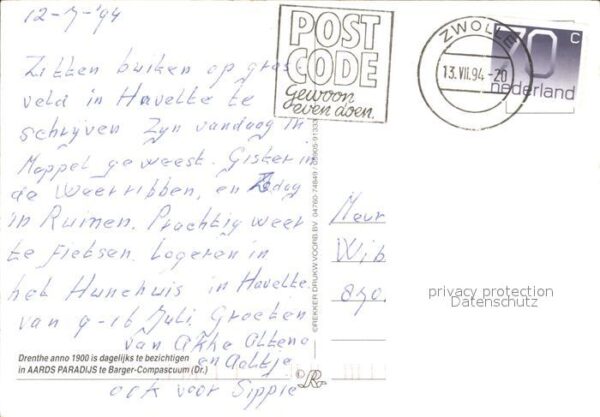 12-7-'94
Zitten buiten op gras
veld in Havelte te
schryven Zyn vandaag in
Meppel geweest. Gisteren in
de Weerribben, en Zdag
in Ruinen. Prachtig weer
te fietsen. Logeren in
het Hunehuis in Havelte
van 9-16 Juli. Groeten
van Akke Ottens
en Aaltje
ook voor Sippie
POST
CODE
Gewoon
even doen.
ZWOLLE
13.VII.94-20
70 c
nederland
Drenthe anno 1900 is dagelijks te bezichtigen
in AARDS PARADIJS te Barger-Compascuum (Dr.)
©REKKER DRUKW VOORB.BV
Wib
privacy protection
Datenschutz